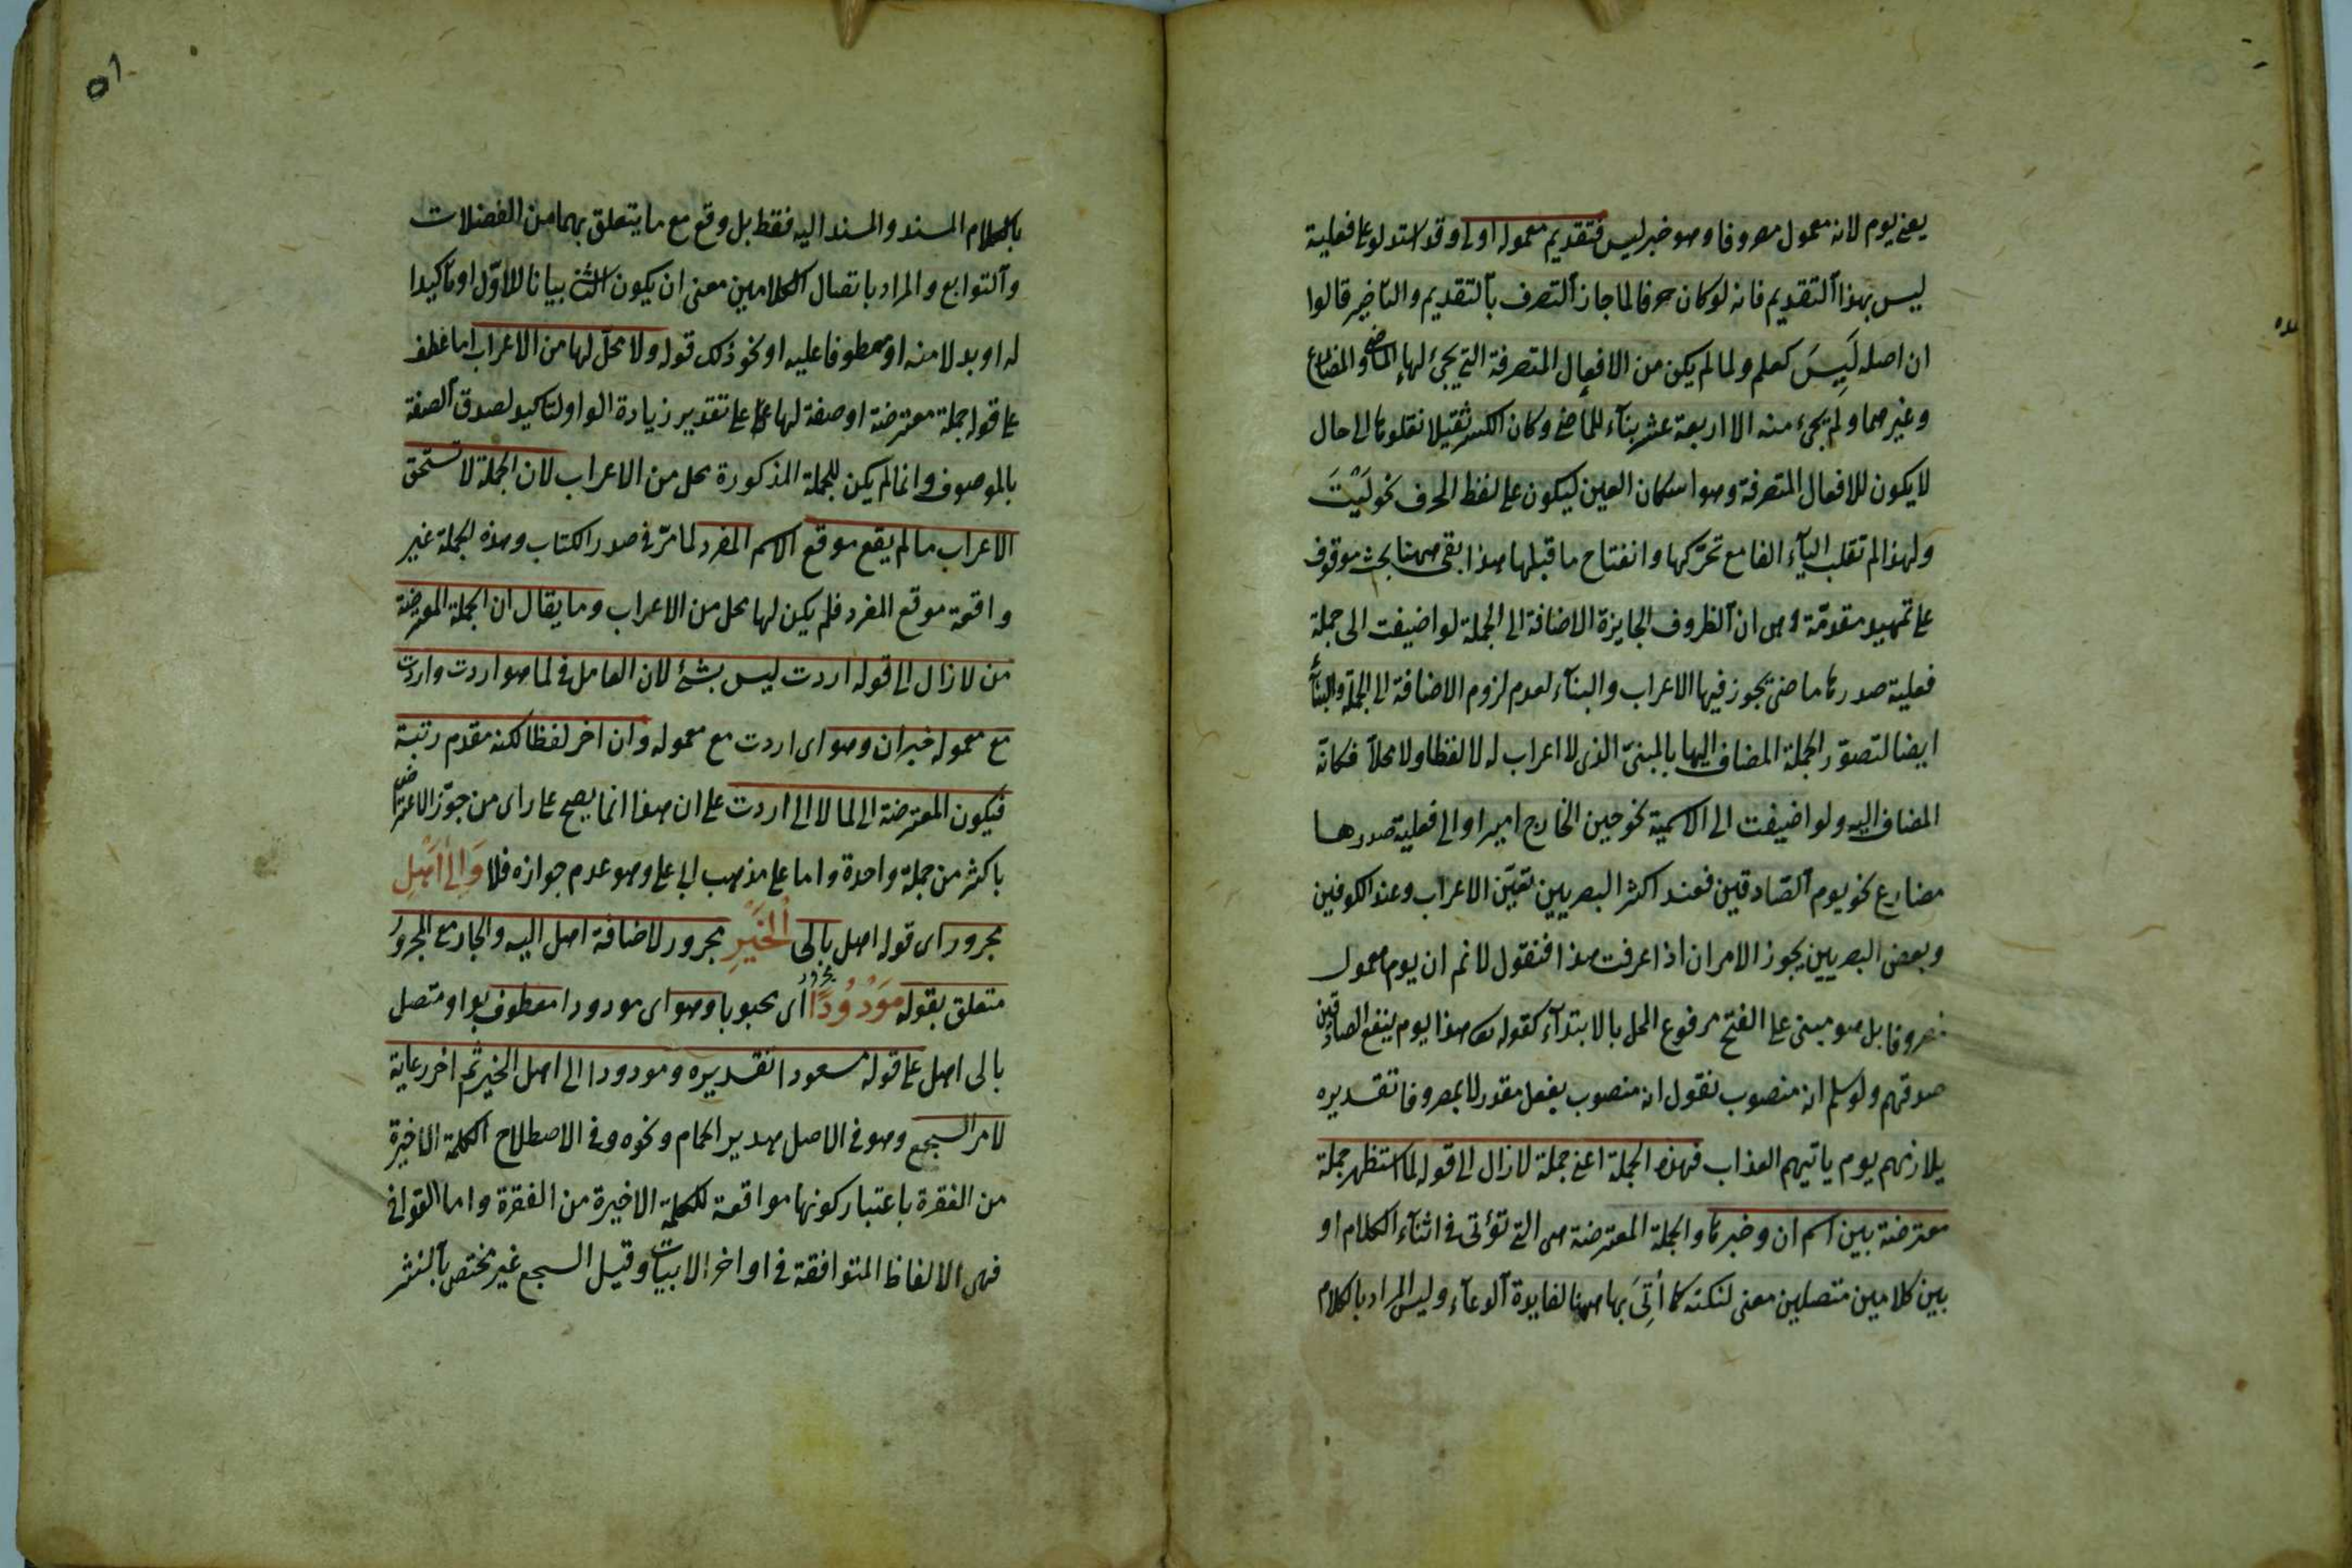 يعنى يوم لانه معمول مصروفا وهو خبر ليس فتقديم معموله اولى وقد استدلوا على فعلية
ليس بهذا التقديم فانه لو كان حرفا لما جاز التصرف بالتقديم والتأخير قالوا
ان اصله لَيِسَ كعلم ولما لم يكن من الافعال المتصرفة التى يجئ لها الماضى والمضارع
وغيرهما ولم يجئ منه الا اربعة عشر بناء للماضى وكان الكسر ثقيلا نقلوها الى حال
لا يكون للافعال المتصرفة وهو اسكان العين ليكون على لفظ الحرف نحو لَيْتَ
ولهذا لم تقلب الياء الفا مع تحركها وانفتاح ما قبلها هذا بقى ههنا بحث موقوف
على تمهيد مقدمة وهى ان الظروف الجايزة الاضافة الى الجملة لو اضيفت الى جملة
فعلية صدرها ماضى يجوز فيها الاعراب والبناء لعدم لزوم الاضافة الى الجملة والبناء
ايضا لتصور الجملة المضاف اليها بالمبنى الذى لا اعراب له لا لفظا ولا محلا فكانه
المضاف اليه ولو اضيفت الى الاسمية نحو حين الخارج امير او الى فعلية صدرها
مضارع نحو يوم الصادقين فعند اكثر البصريين تعين الاعراب وعند الكوفين
وبعض البصريين يجوز الامران اذا عرفت هذا فنقول لانم ان يوم معمول
مصروفا بل هو مبنى على الفتح مرفوع المحل بالابتداء كقوله تع هذا يوم ينفع الصادقين
صدقهم ولو سلم انه منصوب نقول انه منصوب بفعل مقدر لا بمصروفا تقديره
يلازمهم يوم ياتيهم العذاب فهذه الجملة اعنى جملة لازال الى قوله لما استظهر جملة
معترضة بين اسم ان وخبرها والجملة المعترضة هى التى تؤتى فى اثناء الكلام او
بين كلامين متصلين معنى لنكتة كما أُتِىَ بها ههنا لفايدة الدعاء وليس المراد بالكلام
بالكلام المسند والمسند اليه فقط بل وقع مع ما يتعلق بهما من الفضلات
والتوابع والمراد باتصال الكلامين معنى ان يكون الثانى بيانا للاول او تأكيدا
له او بدلا منه او معطوفا عليه او نحو ذلك قوله ولا محل لها من الاعراب اما عطف
على قوله جملة معترضة او صفة لها على تقدير زيادة الواو لتاكيد لصوق الصفة
بالموصوف وانما لم يكن للجملة المذكورة محل من الاعراب لان الجملة لا تستحق
الاعراب ما لم يقع موقع الاسم المفرد لما مر فى صدر الكتاب وهذه الجملة غير
واقعة موقع المفرد فلم يكن لها محل من الاعراب وما يقال ان الجملة المعترضة
من لازال الى قوله اردت ليس بشئ لان العامل فى لما هو اردت واردت
مع معموله خبر ان وهو اى اردت مع معموله وان اخر لفظا لكنه مقدم رتبة
فيكون المعترضة الى لما لا الى اردت على ان هذا انما يصح على راى من جوز الاعتراض
باكثر من جملة واحدة واما على مذهب ابى على وهو عدم جوازه فلا وَاِلَى اَصْلِ
مجرور اى قوله اصل بالى الْخَيْرِ مجرور لاضافة اصل اليه والجار مع المجرور
متعلق بقوله مَوْدُودًا اى محبوبا وهو اى مودودا معطوف بواو متصل
بالى اصل على قوله مسعودا تقديره ومودودا الى اصل الخير ثم اخر رعاية
لامر السجع وهو فى الاصل هدير الحمام ونحوه وفى الاصطلاح الكلمة الاخيرة
من الفقرة باعتبار كونها مواقعة للكلمة الاخيرة من الفقرة واما القوافى
فهى الالفاظ المتوافقة فى اواخر الابيات وقيل السجع غير مختص بالنثر